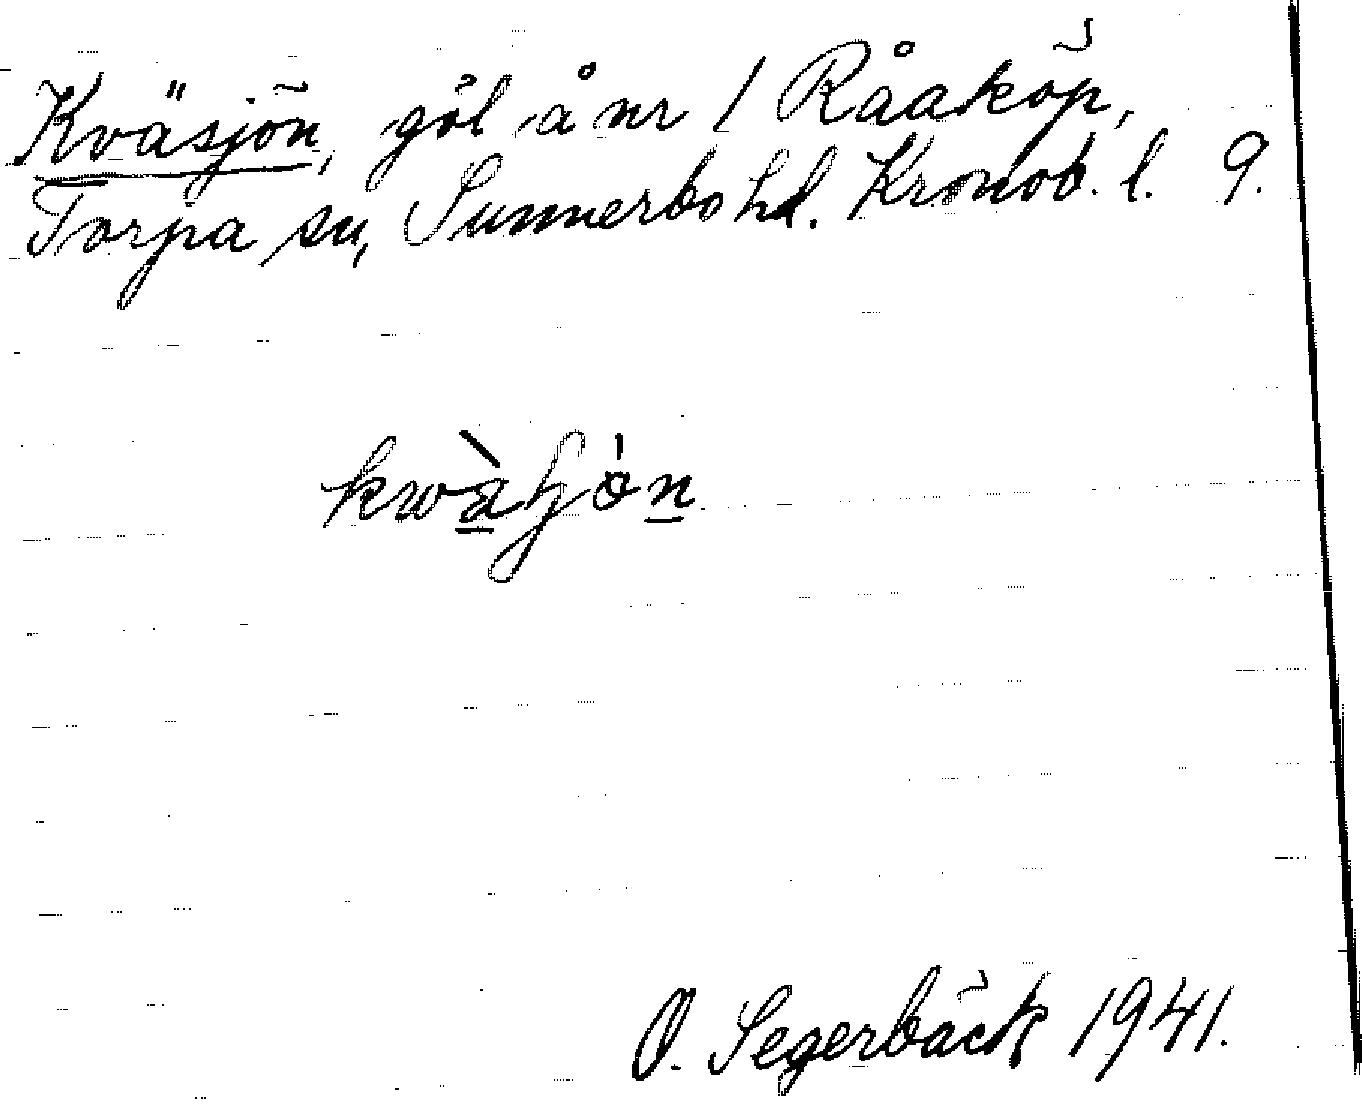 Kväsjön, göl å nr 1 Råaköp,
Torpa sn, Sunnerbo hd. Kronob. l. 9.
kwàʃȯn
O. Segerbäck 1941.